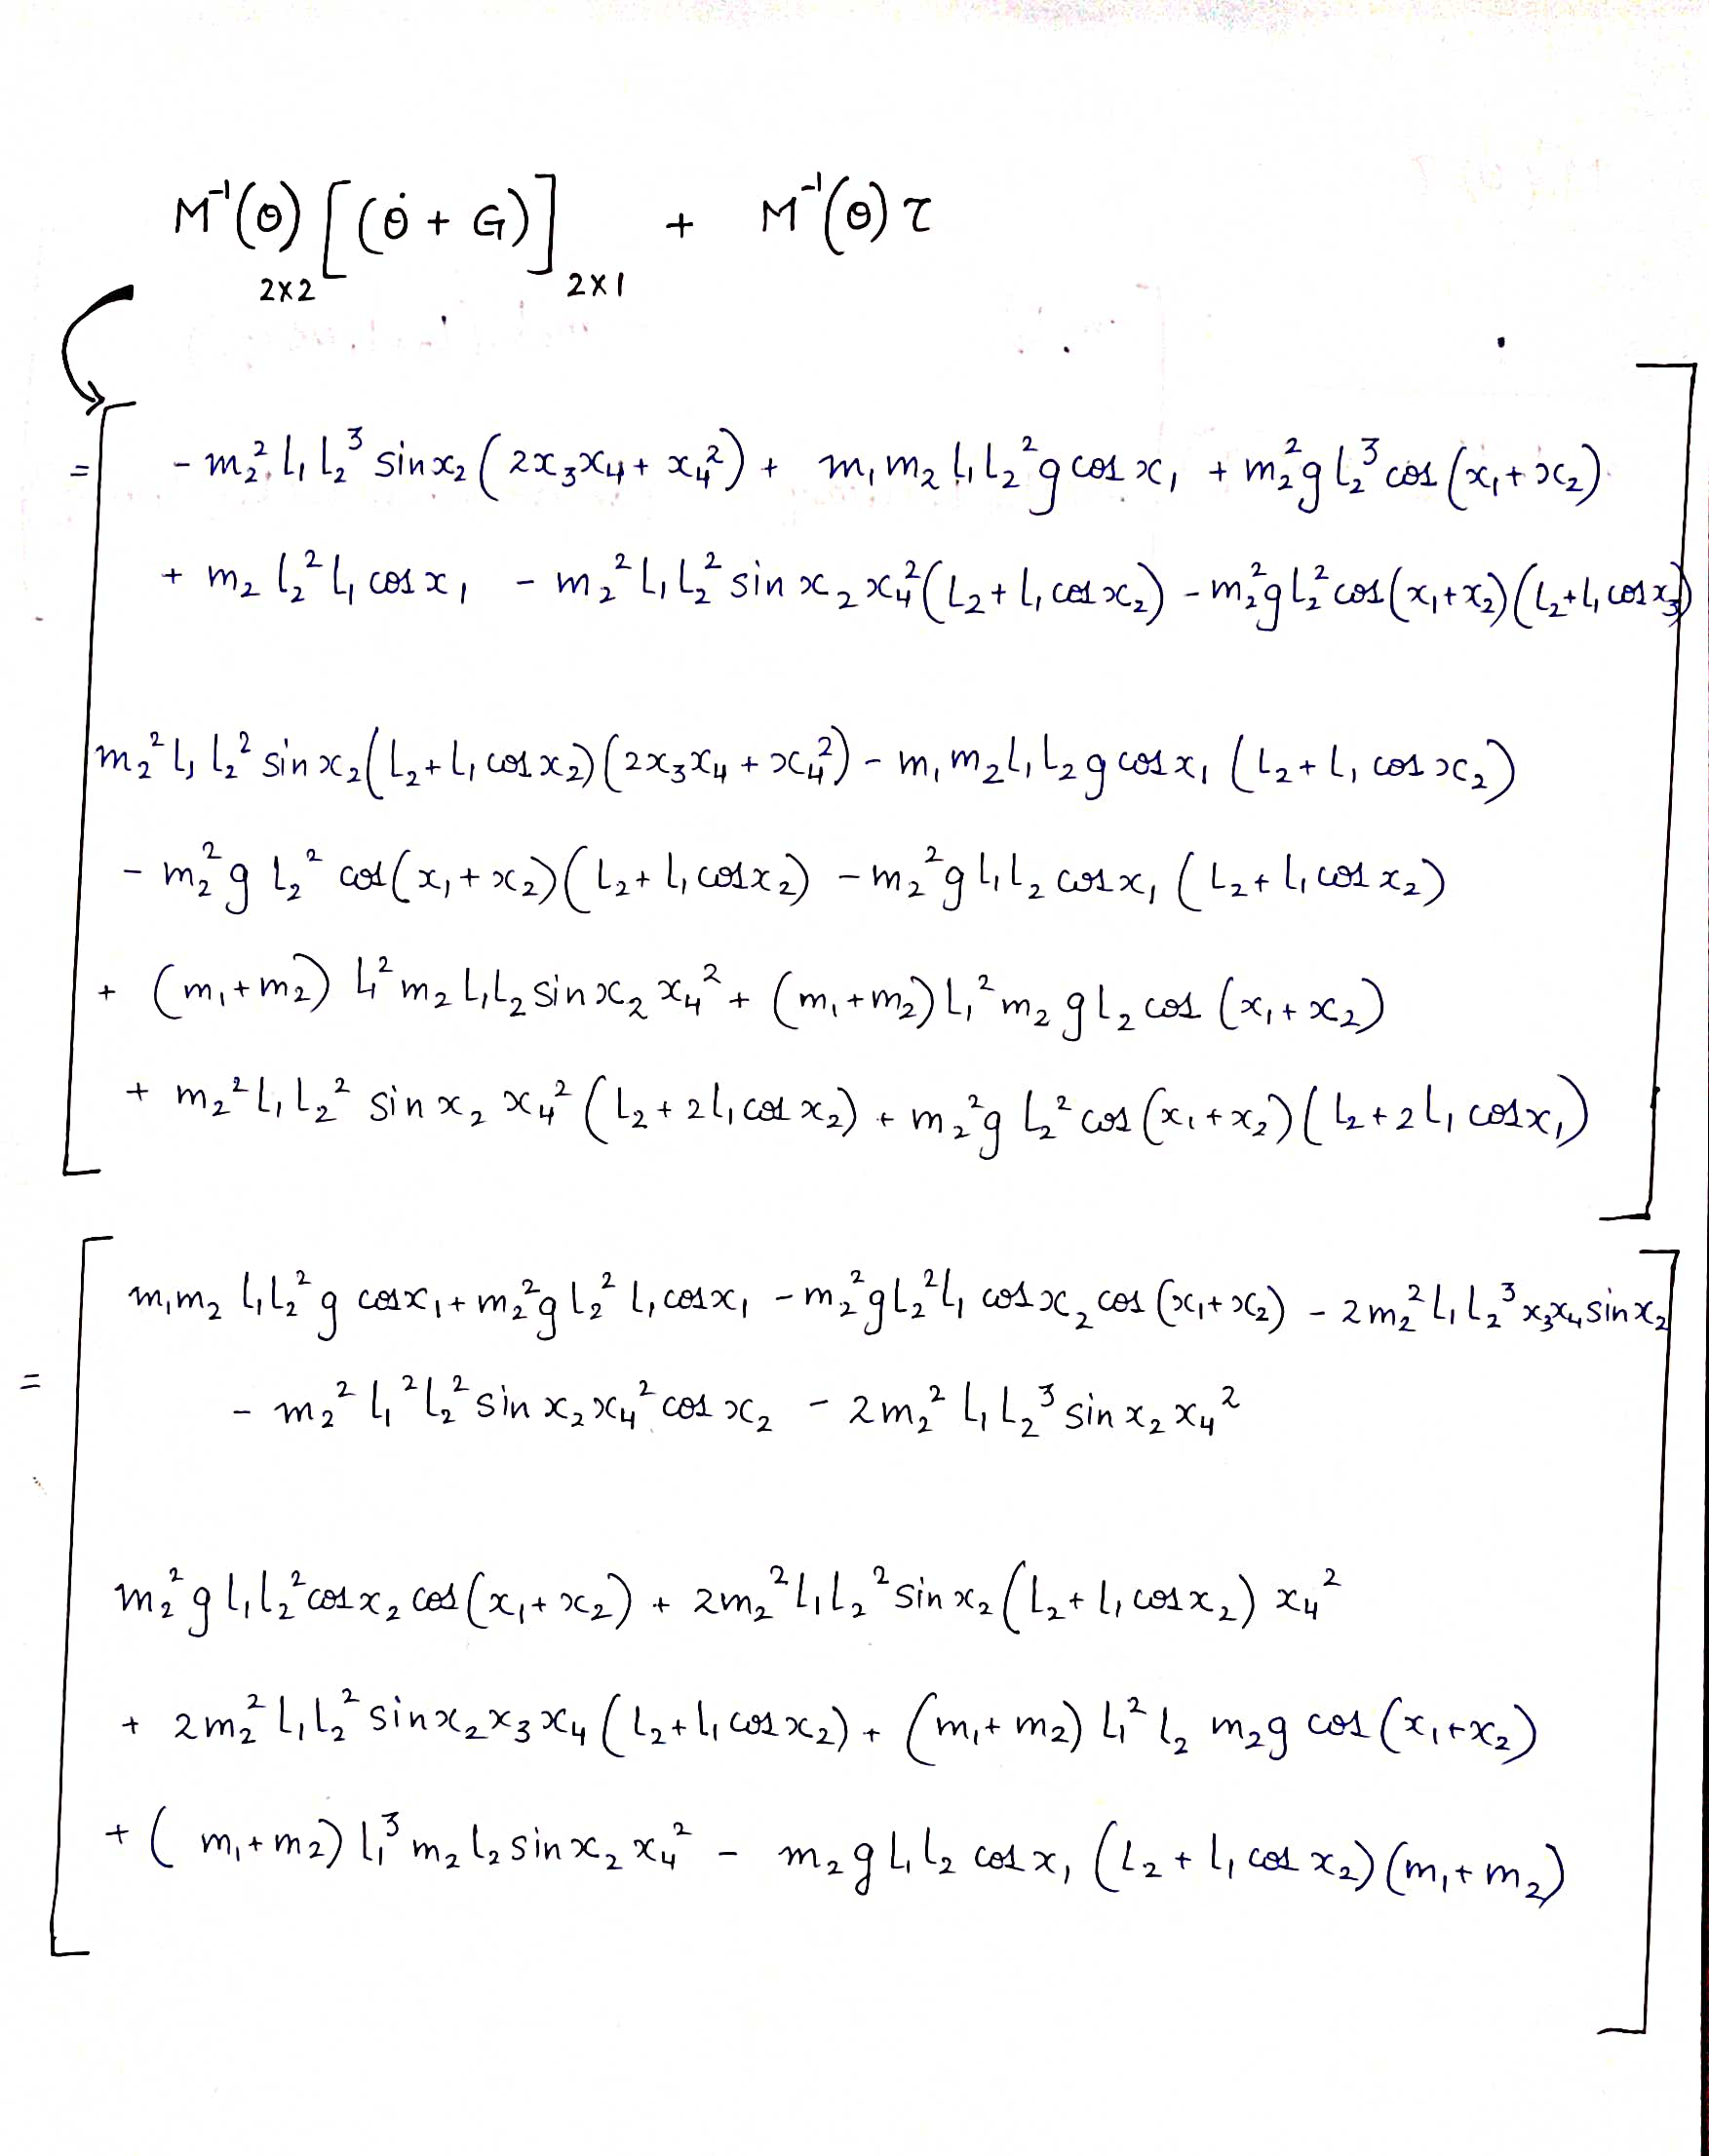 M⁻¹(Θ) [(Θ̇ + G)] + M⁻¹(Θ) τ
2x2 2x1
= [ - m₂² L₁ L₂³ sin x₂ (2x₃x₄ + x₄²) + m₁ m₂ L₁ L₂² g cos x₁ + m₂² g L₂³ cos (x₁ + x₂)
+ m₂ L₂² L₁ cos x₁ - m₂² L₁ L₂² sin x₂ x₄² (L₂ + L₁ cos x₂) - m₂² g L₂² cos (x₁ + x₂) (L₂ + L₁ cos x₂)
m₂² L₁ L₂² sin x₂ (L₂ + L₁ cos x₂) (2x₃x₄ + x₄²) - m₁ m₂ L₁ L₂ g cos x₁ (L₂ + L₁ cos x₂)
- m₂² g L₂² cos (x₁ + x₂) (L₂ + L₁ cos x₂) - m₂² g L₁ L₂ cos x₁ (L₂ + L₁ cos x₂)
+ (m₁ + m₂) L₁² m₂ L₁ L₂ sin x₂ x₄² + (m₁ + m₂) L₁² m₂ g L₂ cos (x₁ + x₂)
+ m₂² L₁ L₂² sin x₂ x₄² (L₂ + 2L₁ cos x₂) + m₂² g L₂² cos (x₁ + x₂) (L₂ + 2L₁ cos x₁) ]
= [ m₁ m₂ L₁ L₂² g cos x₁ + m₂² g L₂² L₁ cos x₁ - m₂² g L₂² L₁ cos x₂ cos (x₁ + x₂) - 2 m₂² L₁ L₂³ x₃x₄ sin x₂
- m₂² L₁² L₂² sin x₂ x₄² cos x₂ - 2 m₂² L₁ L₂³ sin x₂ x₄²
m₂² g L₁ L₂² cos x₂ cos (x₁ + x₂) + 2 m₂² L₁ L₂² sin x₂ (L₂ + L₁ cos x₂) x₄²
+ 2 m₂² L₁ L₂² sin x₂ x₃ x₄ (L₂ + L₁ cos x₂) + (m₁ + m₂) L₁² L₂ m₂ g cos (x₁ + x₂)
+ (m₁ + m₂) L₁³ m₂ L₂ sin x₂ x₄² - m₂ g L₁ L₂ cos x₁ (L₂ + L₁ cos x₂) (m₁ + m₂) ]